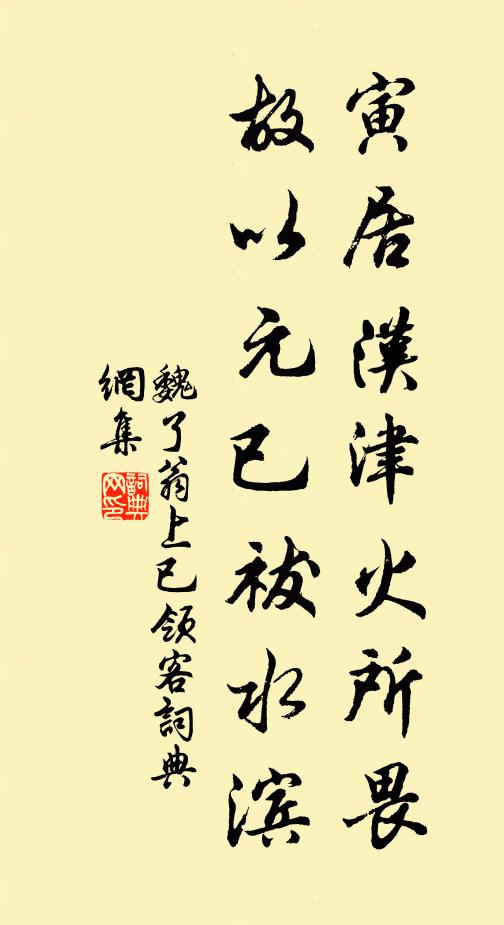 寅居漢津火所畏
故以元巳祓水滨
魏了翁上巳领客詞典
網集
詞典網印